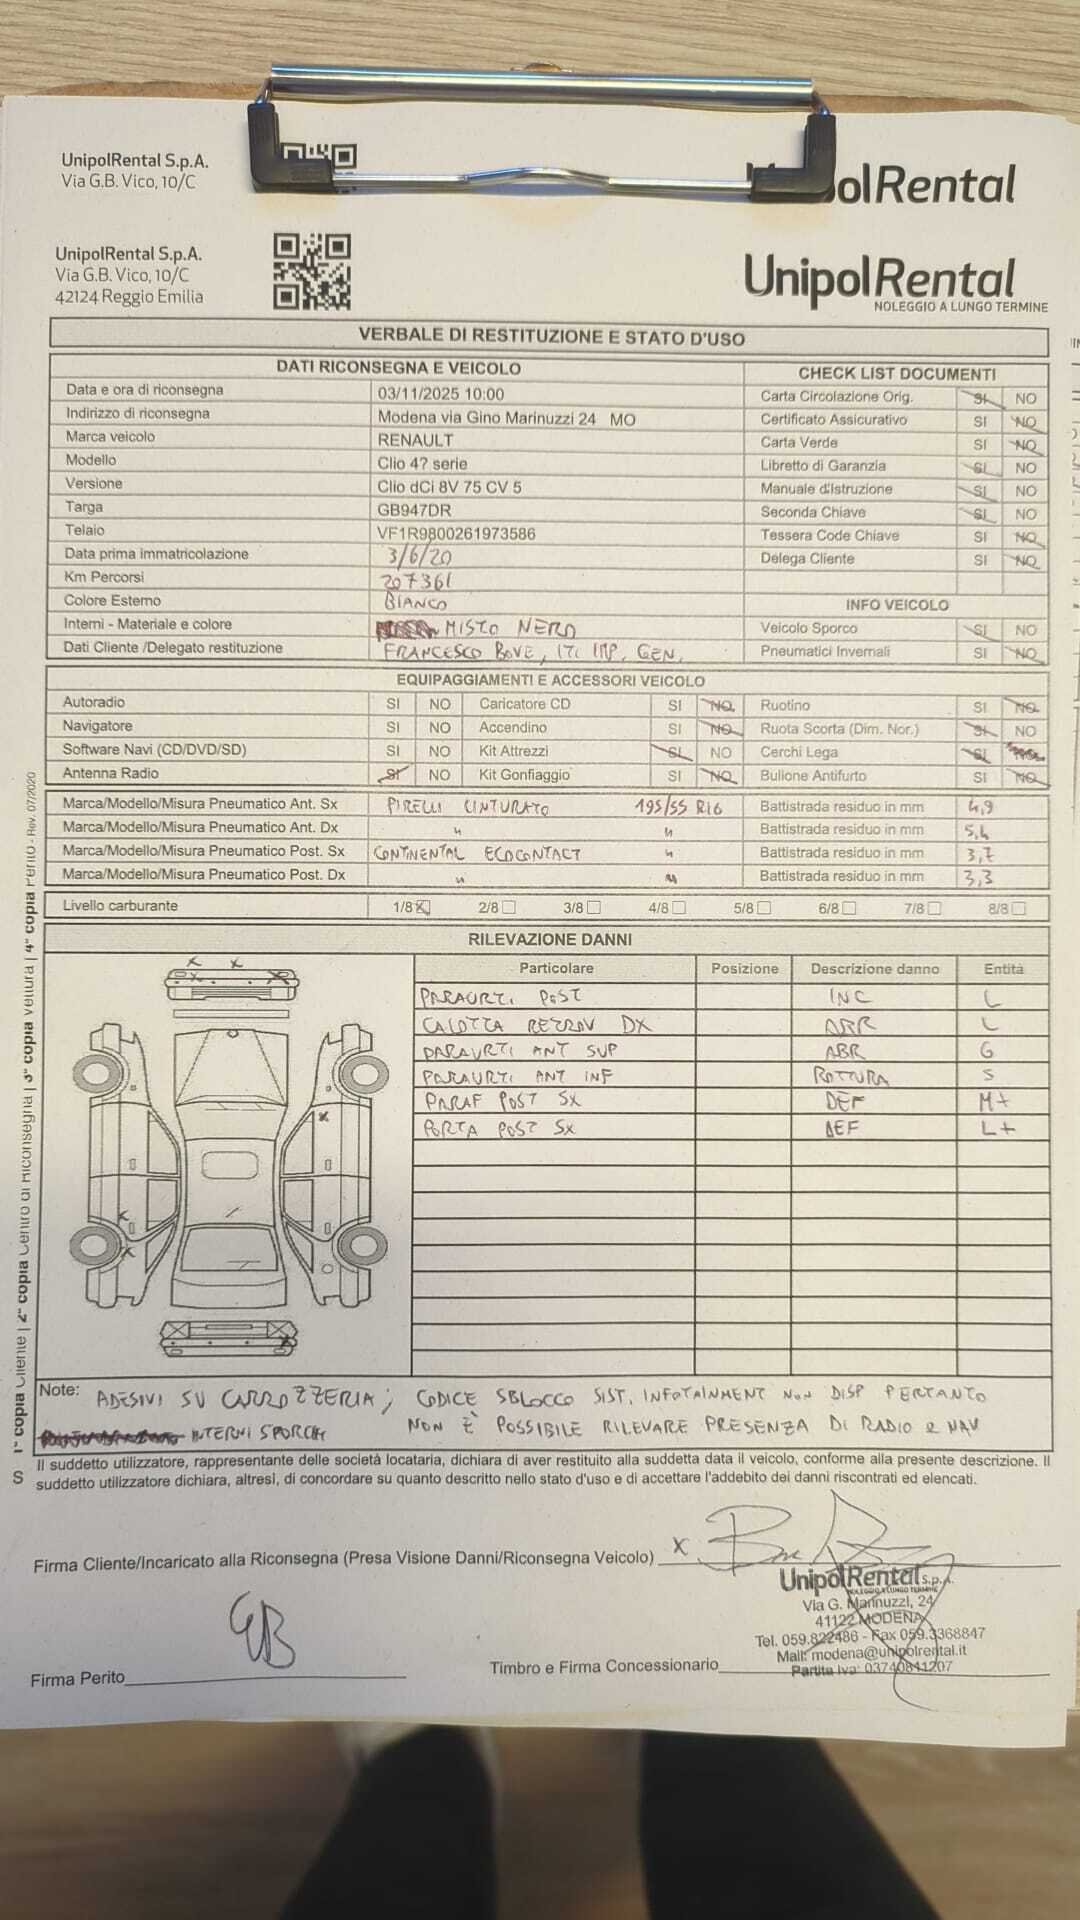 UnipolRental S.p.A.
Via G.B. Vico, 10/C
polRental
UnipolRental S.p.A.
Via G.B. Vico, 10/C
42124 Reggio Emilia
UnipolRental
NOLEGGIO A LUNGO TERMINE
VERBALE DI RESTITUZIONE E STATO D'USO
DATI RICONSEGNA E VEICOLO
Data e ora di riconsegna 03/11/2025 10:00
Indirizzo di riconsegna Modena via Gino Marinuzzi 24 MO
Marca veicolo RENAULT
Modello Clio 4? serie
Versione Clio dCi 8V 75 CV 5
Targa GB947DR
Telaio VF1R9800261973586
Data prima immatricolazione 3/6/20
Km Percorsi 207361
Colore Esterno BIANCO
Interni - Materiale e colore MISTO NERO
Dati Cliente /Delegato restituzione FRANCESCO BOVE, ITI IMP. GEN.
CHECK LIST DOCUMENTI
Carta Circolazione Orig. SI NO
Certificato Assicurativo SI NO
Carta Verde SI NO
Libretto di Garanzia SI NO
Manuale d'Istruzione SI NO
Seconda Chiave SI NO
Tessera Code Chiave SI NO
Delega Cliente SI NO
INFO VEICOLO
Veicolo Sporco SI NO
Pneumatici Invernali SI NO
EQUIPAGGIAMENTI E ACCESSORI VEICOLO
Autoradio SI NO Caricatore CD SI NO Ruotino SI NO
Navigatore SI NO Accendino SI NO Ruota Scorta (Dim. Nor.) SI NO
Software Navi (CD/DVD/SD) SI NO Kit Attrezzi SI NO Cerchi Lega SI NO
Antenna Radio SI NO Kit Gonfiaggio SI NO Bullone Antifurto SI NO
Marca/Modello/Misura Pneumatico Ant. Sx PIRELLI CINTURATO 195/55 R16 Battistrada residuo in mm 4,9
Marca/Modello/Misura Pneumatico Ant. Dx " " Battistrada residuo in mm 5,4
Marca/Modello/Misura Pneumatico Post. Sx CONTINENTAL ECOCONTACT " Battistrada residuo in mm 3,7
Marca/Modello/Misura Pneumatico Post. Dx " " Battistrada residuo in mm 3,3
Livello carburante 1/8 2/8 3/8 4/8 5/8 6/8 7/8 8/8
RILEVAZIONE DANNI
Particolare Posizione Descrizione danno Entità
PARAURTI POST INC L
CALOTTA RETROV DX ABR L
PARAURTI ANT SUP ABR G
PARAURTI ANT INF ROTTURA S
PARAF POST SX DEF M+
PORTA POST SX DEF L+
Note: ADESIVI SU CARROZZERIA; CODICE SBLOCCO SIST. INFOTAINMENT NON DISP PERTANTO
INTERNI SPORCHI NON È POSSIBILE RILEVARE PRESENZA DI RADIO e NAV
Il suddetto utilizzatore, rappresentante delle società locataria, dichiara di aver restituito alla suddetta data il veicolo, conforme alla presente descrizione. Il
suddetto utilizzatore dichiara, altresì, di concordare su quanto descritto nello stato d'uso e di accettare l'addebito dei danni riscontrati ed elencati.
Firma Cliente/Incaricato alla Riconsegna (Presa Visione Danni/Riconsegna Veicolo) X
UnipolRental S.p.A.
NOLEGGIO A LUNGO TERMINE
Via G. Marinuzzi, 24
41122 MODENA
Tel. 059.822486 - Fax 059.3368847
Mail: modena@unipolrental.it
Partita Iva: 03740811207
Firma Perito
Timbro e Firma Concessionario
1ª copia Cliente | 2ª copia Centro di Riconsegna | 3ª copia Vettura | 4ª copia Perito - Rev. 07/2020
S